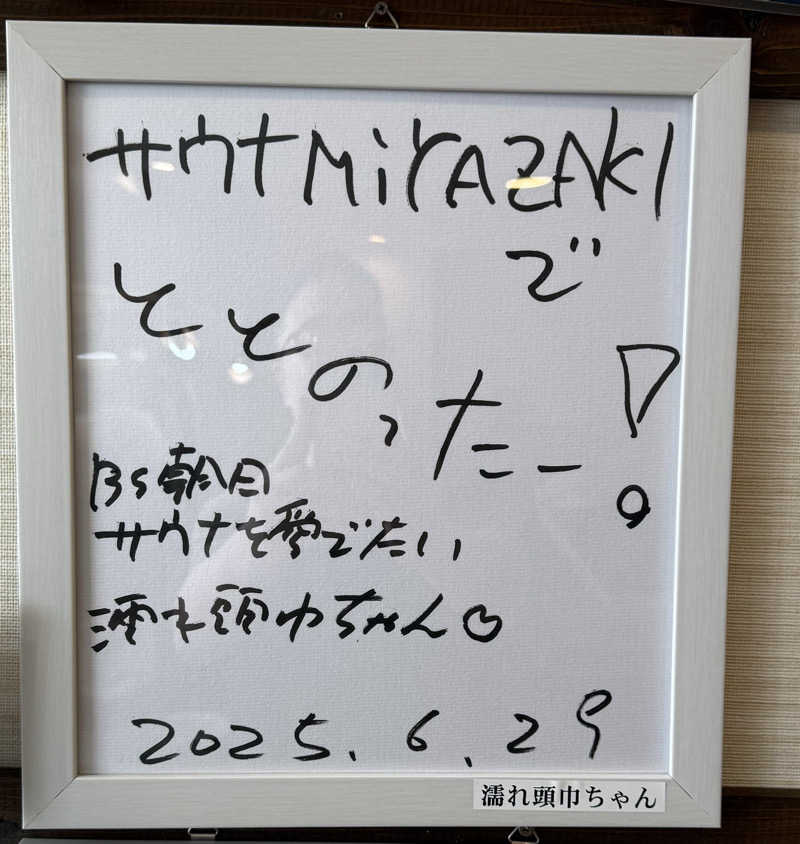 サウナMiYAZAKI
で
ととのったー!
BS朝日
サウナを愛でたい
濡れ頭巾ちゃん♡
2025.6.29
濡れ頭巾ちゃん